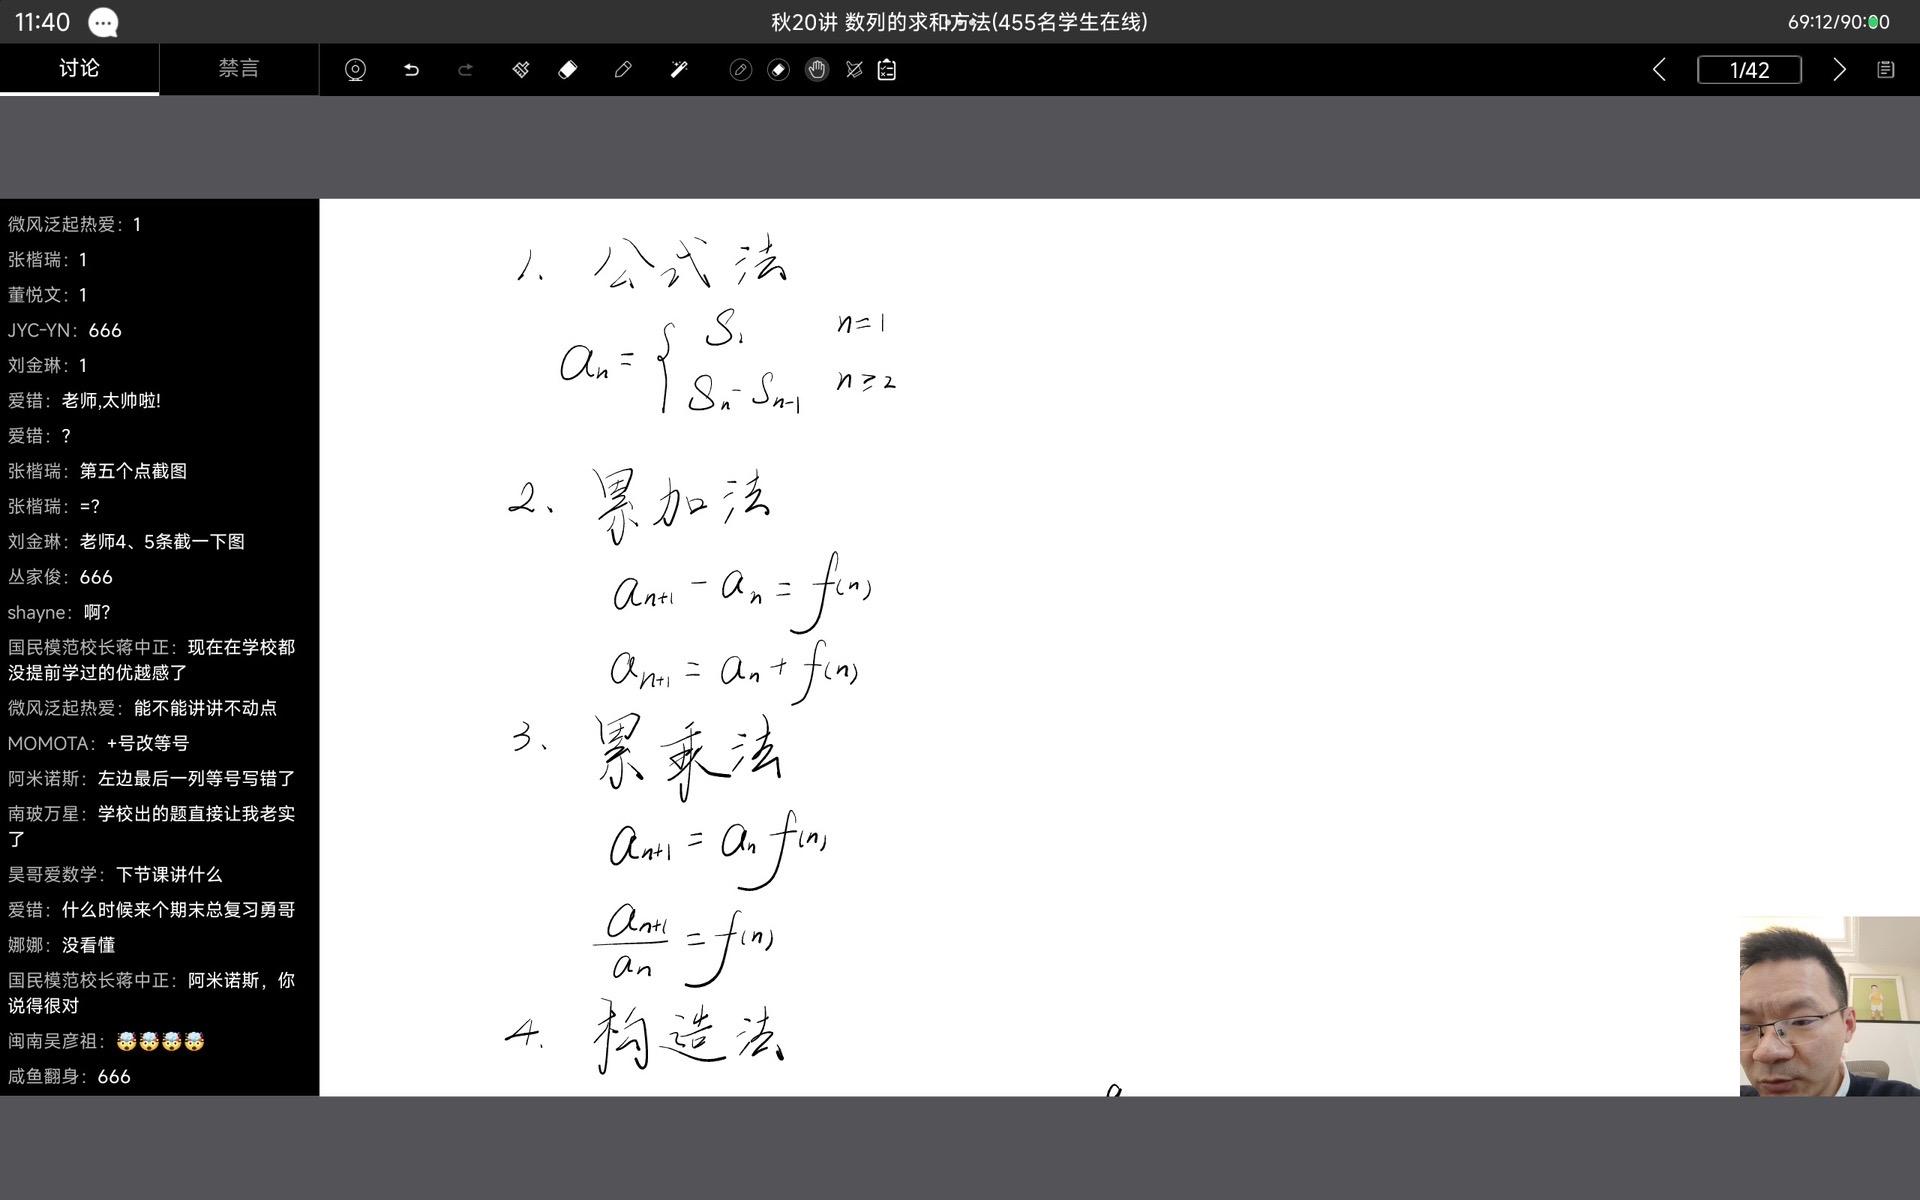 11:40
秋20讲 数列的求和方法(455名学生在线)
69:12/90:00
讨论
禁言
1/42
微风泛起热爱：1
张楷瑞：1
董悦文：1
JYC-YN：666
刘金琳：1
爱错：老师,太帅啦!
爱错：?
张楷瑞：第五个点截图
张楷瑞：=?
刘金琳：老师4、5条截一下图
丛家俊：666
shayne：啊?
国民模范校长蒋中正：现在在学校都
没提前学过的优越感了
微风泛起热爱：能不能讲讲不动点
MOMOTA：+号改等号
阿米诺斯：左边最后一列等号写错了
南玻万星：学校出的题直接让我老实
了
昊哥爱数学：下节课讲什么
爱错：什么时候来个期末总复习勇哥
娜娜：没看懂
国民模范校长蒋中正：阿米诺斯，你
说得很对
闽南吴彦祖：🤯🤯🤯🤯
咸鱼翻身：666
1、公式法
aₙ = { S₁ n=1
Sₙ - Sₙ₋₁ n≥2
2、累加法
aₙ₊₁ - aₙ = f(n)
aₙ₊₁ = aₙ + f(n)
3、累乘法
aₙ₊₁ = aₙ f(n)
aₙ₊₁/aₙ = f(n)
4、构造法